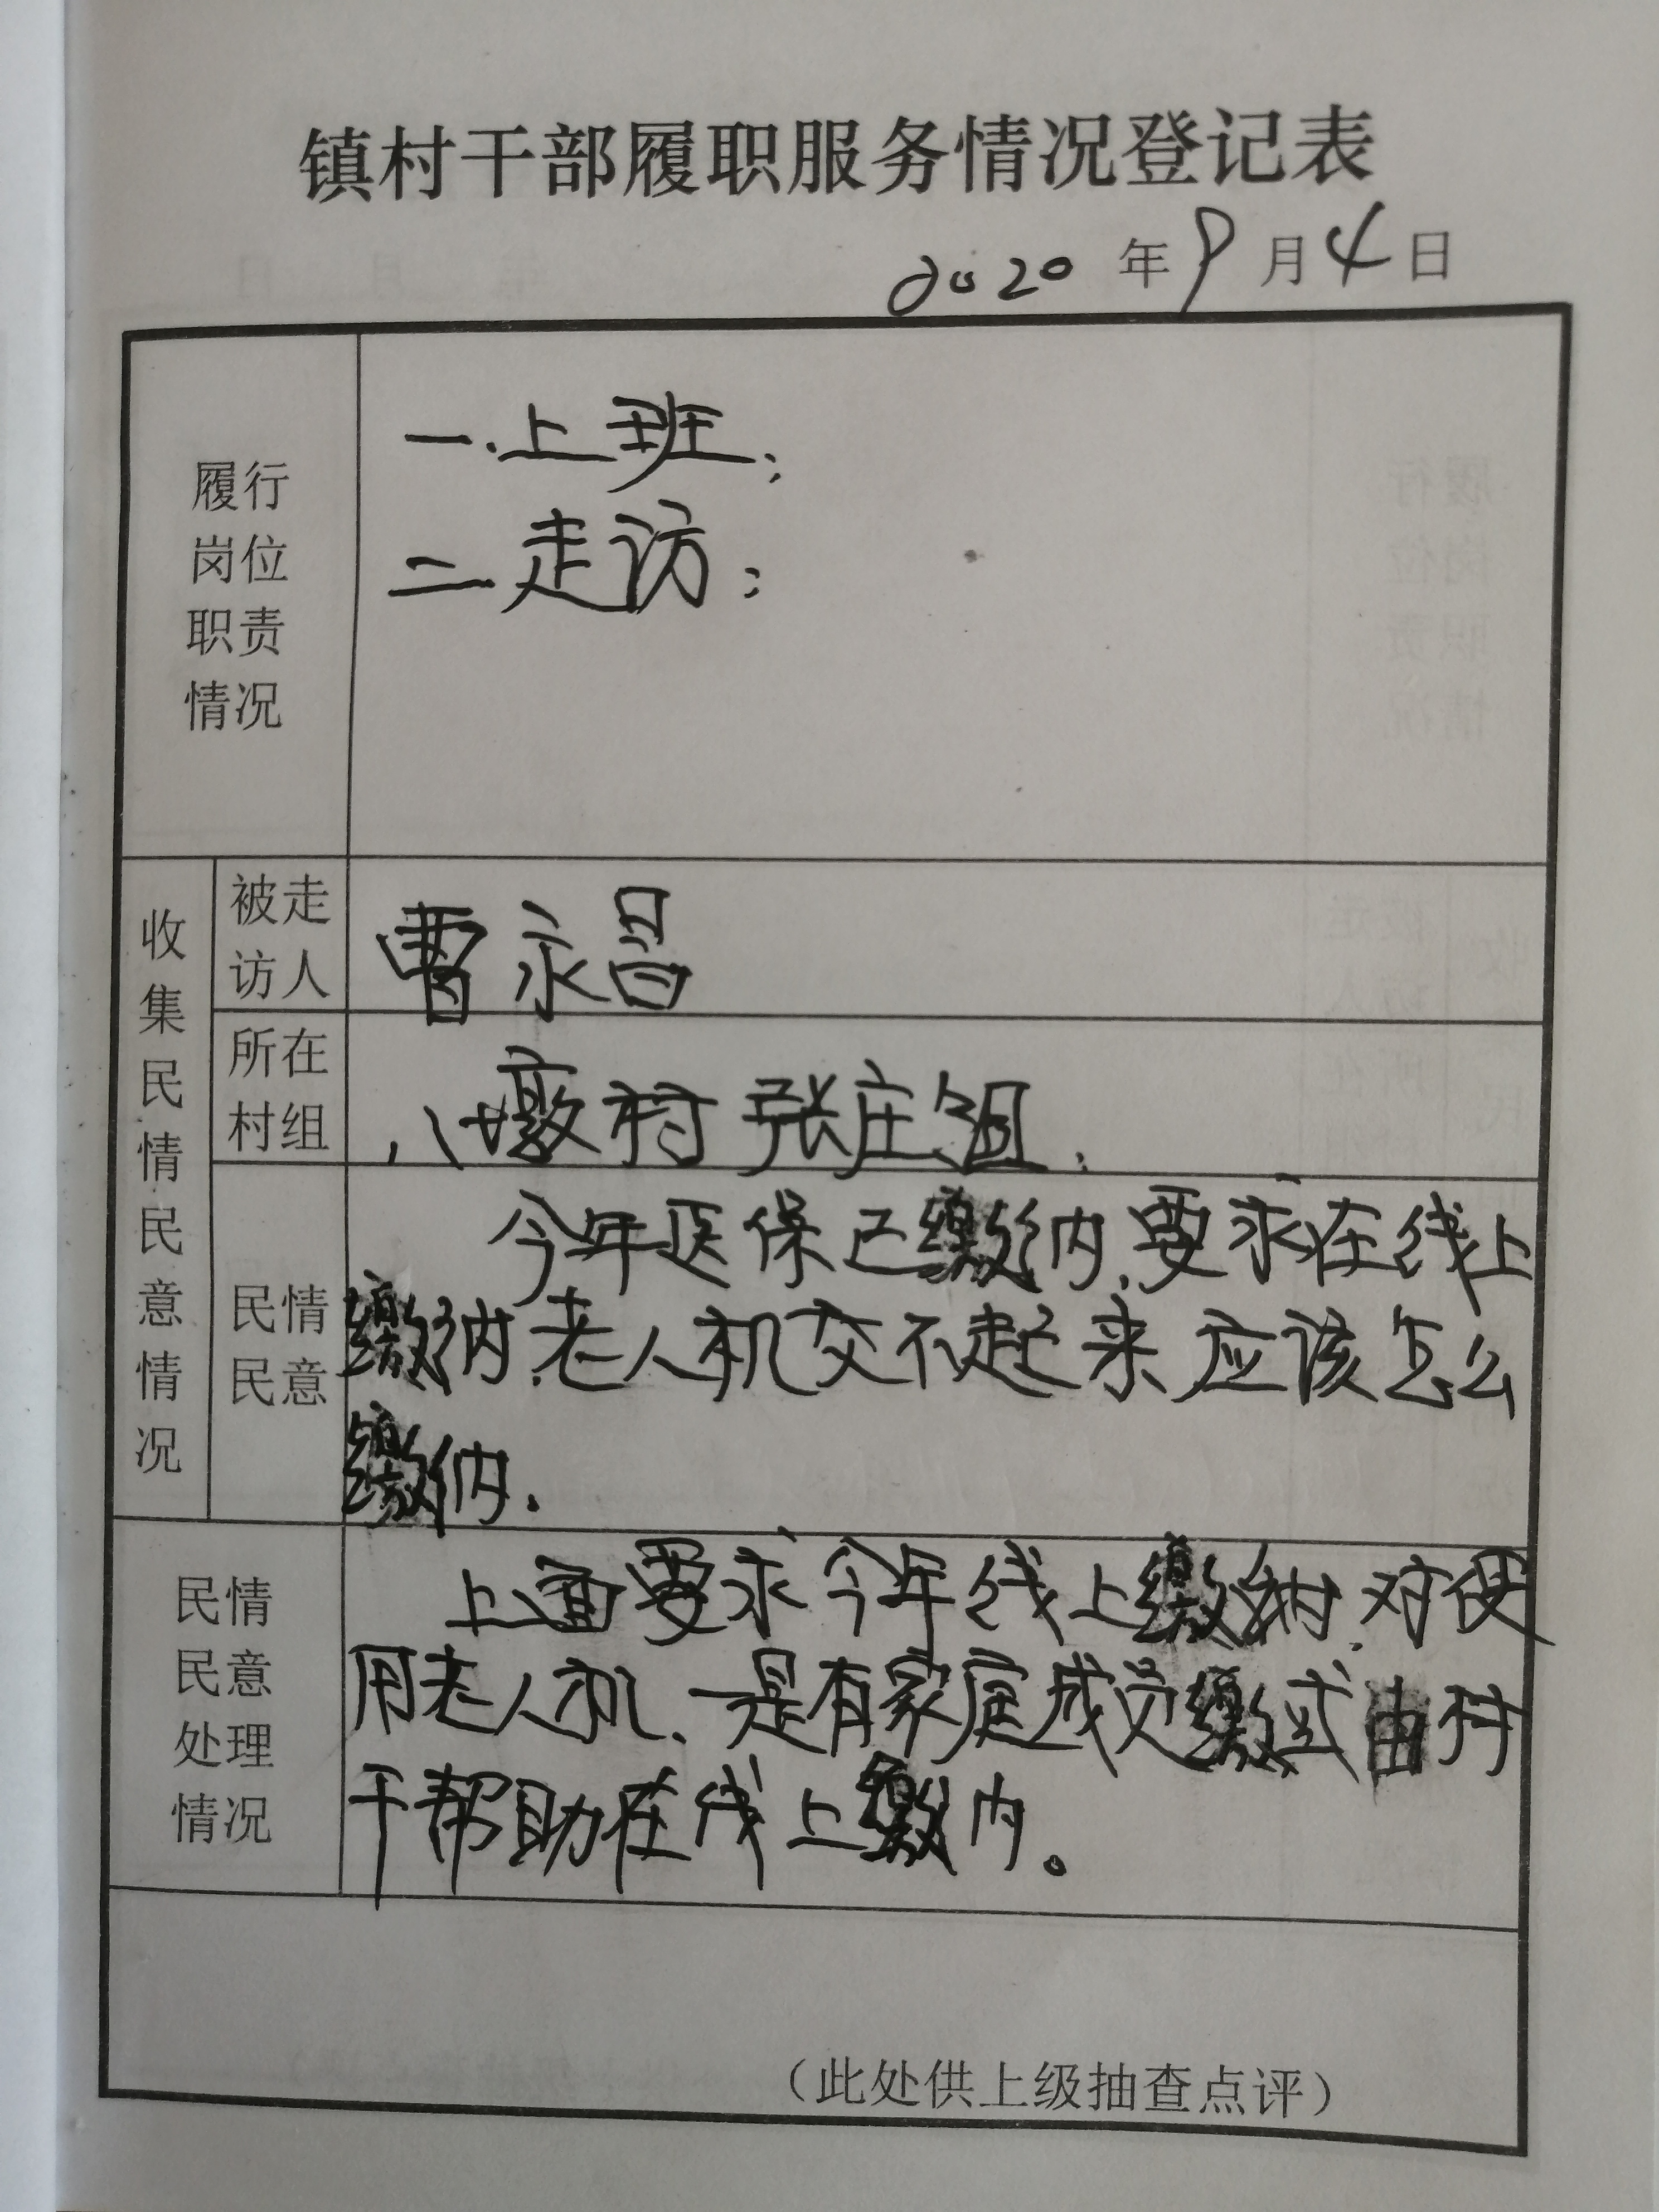 镇村干部履职服务情况登记表
2020年9月4日
履行
岗位
职责
情况
一.上班;
二.走访;
收集民情民意情况
被走
访人
曹永昌
所在
村组
八墩村张庄组.
民情
民意
今年医保已缴纳,要求在线上
缴纳,老人机交不起来应该怎么
缴纳.
民情
民意
处理
情况
上面要求今年线上缴纳,对使
用老人机、一是有家庭成员缴或由村
干帮助在线上缴内。
(此处供上级抽查点评)